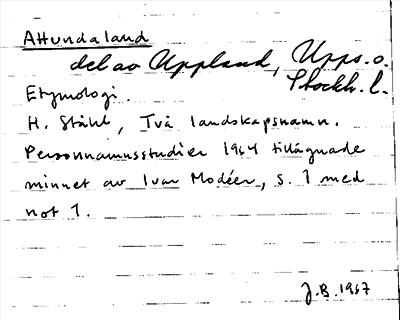 Attundaland
del av Uppland, Upps. o.
Stockh. l.
Etymologi.
H. Ståhl, Två landskapsnamn.
Personnamnsstudier 1964 tillägnade
minnet av Ivar Modéer, s. 1 med
not 1.
J.B. 1967